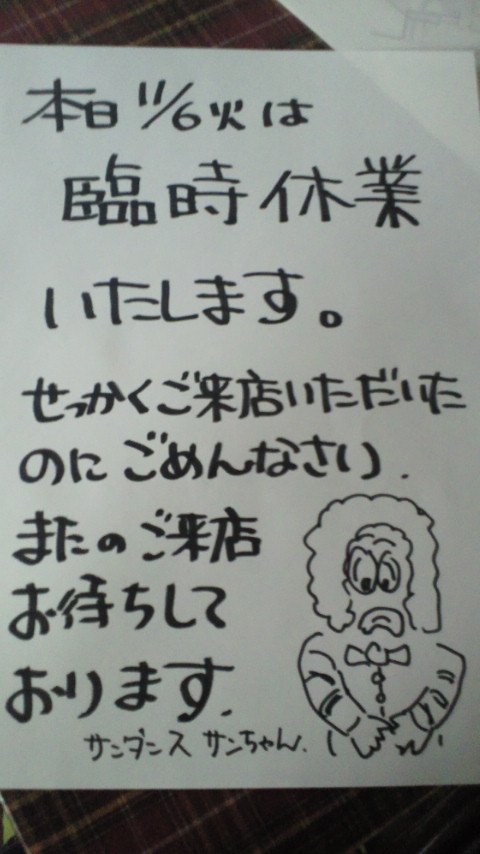 本日 11/6 火 は
臨時休業
いたします。
せっかくご来店いただいた
のに ごめんなさい.
またのご来店
お待ちして
おります.
サンダンス サンちゃん.